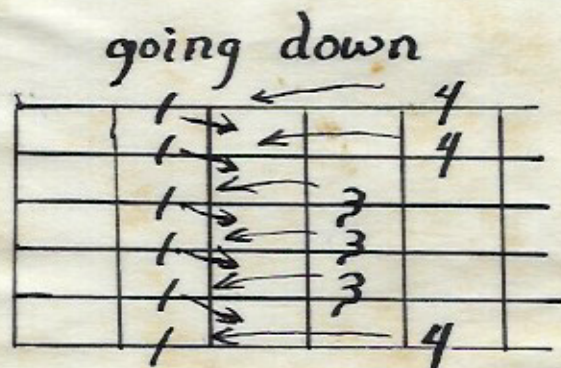 going down
1 4
1 4
1 3
1 3
1 3
1 4